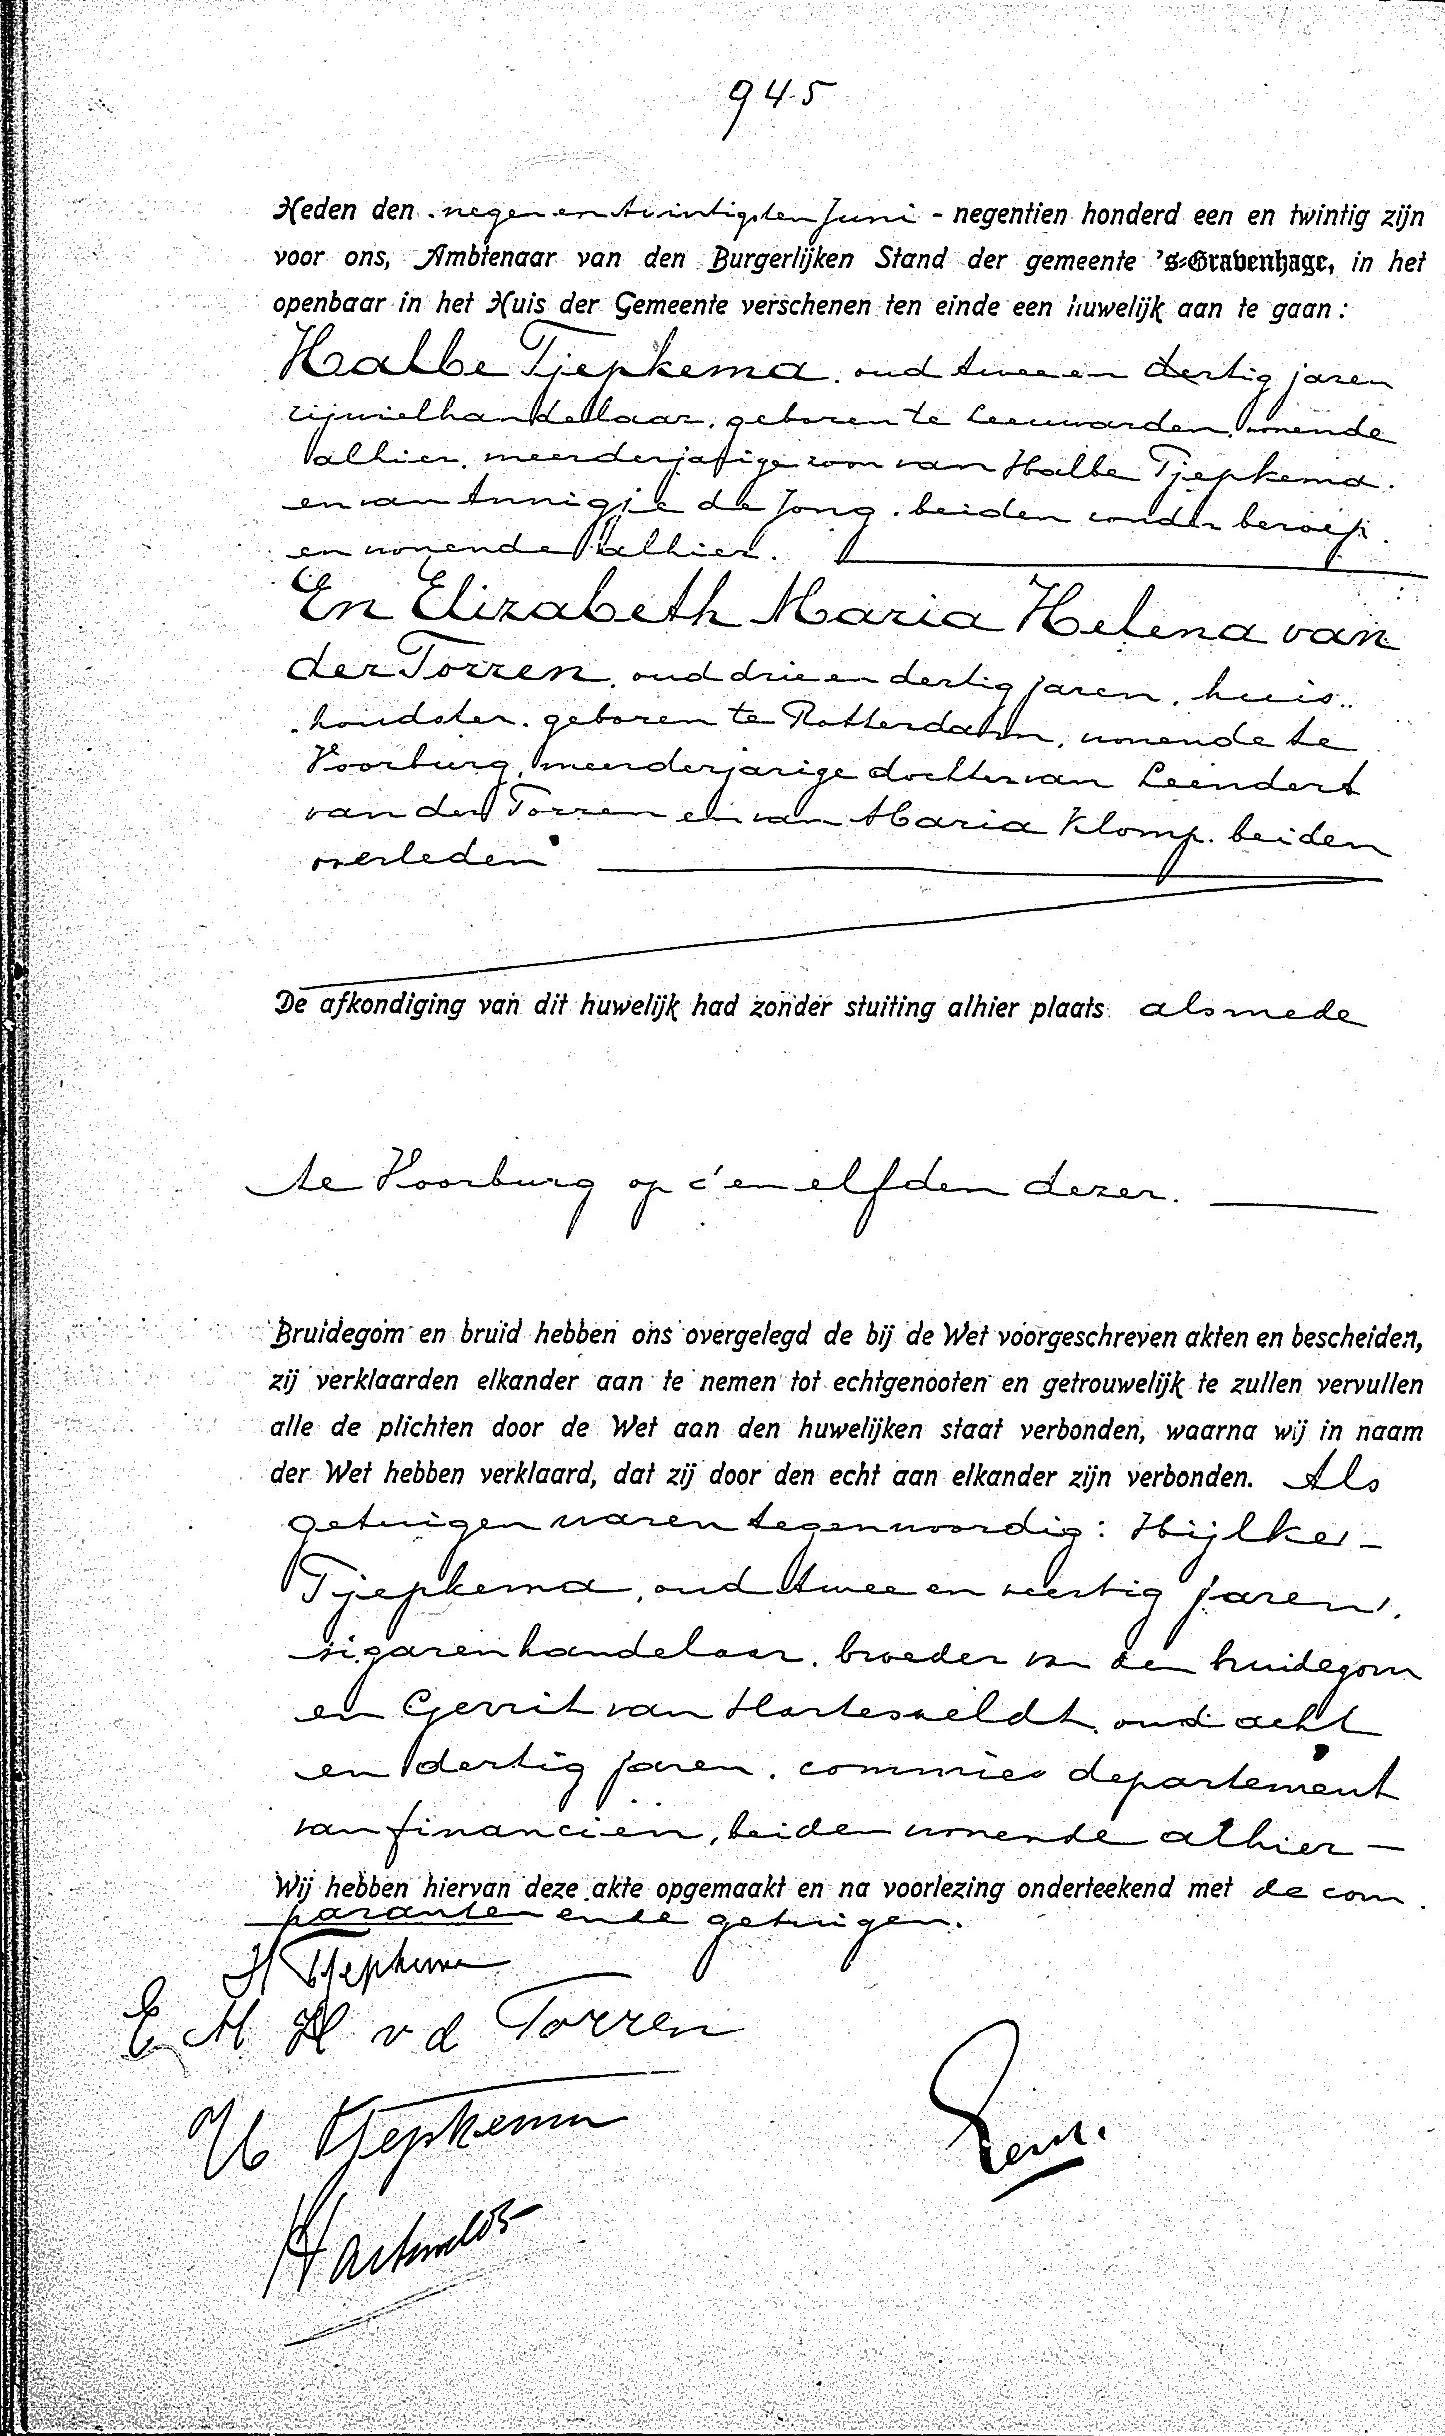 945
Heden den negen en twintigsten Juni - negentien honderd een en twintig zijn
voor ons, Ambtenaar van den Burgerlijken Stand der gemeente 's-Gravenhage, in het
openbaar in het Huis der Gemeente verschenen ten einde een huwelijk aan te gaan:
Halbe Tjepkema, oud twee en dertig jaren
rijwielhandelaar, geboren te Leeuwarden, wonende
alhier, meerderjarige zoon van Halbe Tjepkema.
en van Annigje de Jong, beiden zonder beroep
en wonende alhier.
En Elizabeth Maria Helena van
der Torren, oud drie en dertig jaren, huis..
houdster, geboren te Rotterdam, wonende te
Voorburg, meerderjarige dochter van Leendert
van der Torren en van Maria Klomp, beiden
overleden
De afkondiging van dit huwelijk had zonder stuiting alhier plaats alsmede
te Voorburg op den elfden dezer.
Bruidegom en bruid hebben ons overgelegd de bij de Wet voorgeschreven akten en bescheiden,
zij verklaarden elkander aan te nemen tot echtgenooten en getrouwelijk te zullen vervullen
alle de plichten door de Wet aan den huwelijken staat verbonden, waarna wij in naam
der Wet hebben verklaard, dat zij door den echt aan elkander zijn verbonden. Als
getuigen waren tegenwoordig: Hijlke -
Tjepkema, oud twee en veertig jaren,
sigarenhandelaar, broeder van den bruidegom
en Gerrit van Hartesveldt, oud acht
en dertig jaren, commies departement
van financiën, beiden wonende alhier -
Wij hebben hiervan deze akte opgemaakt en na voorlezing onderteekend met de com
paranten en de getuigen.
H Tjepkema
E M H v d Torren
H Tjepkema